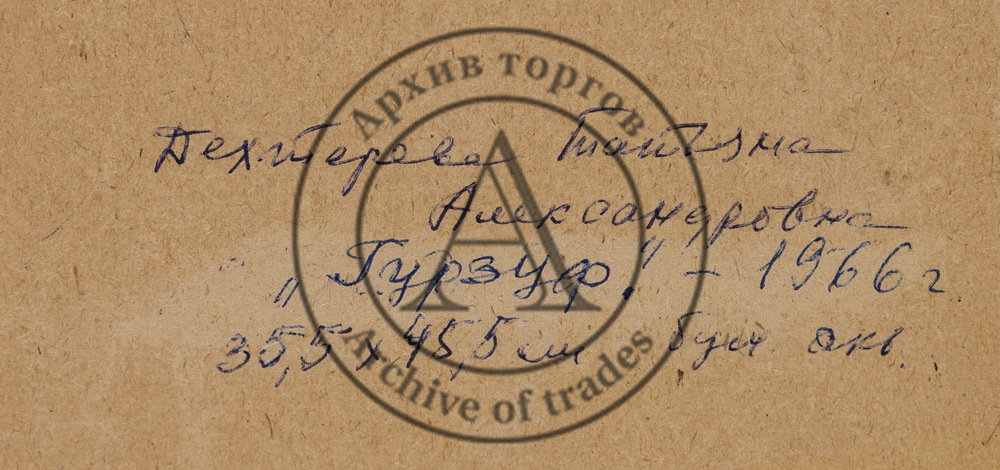 Архив торгов
Дехтерева Татьяна
Александровна
„Гурзуф." – 1966 г.
35,5 х 45,5 см бум акв.
Archive of trades